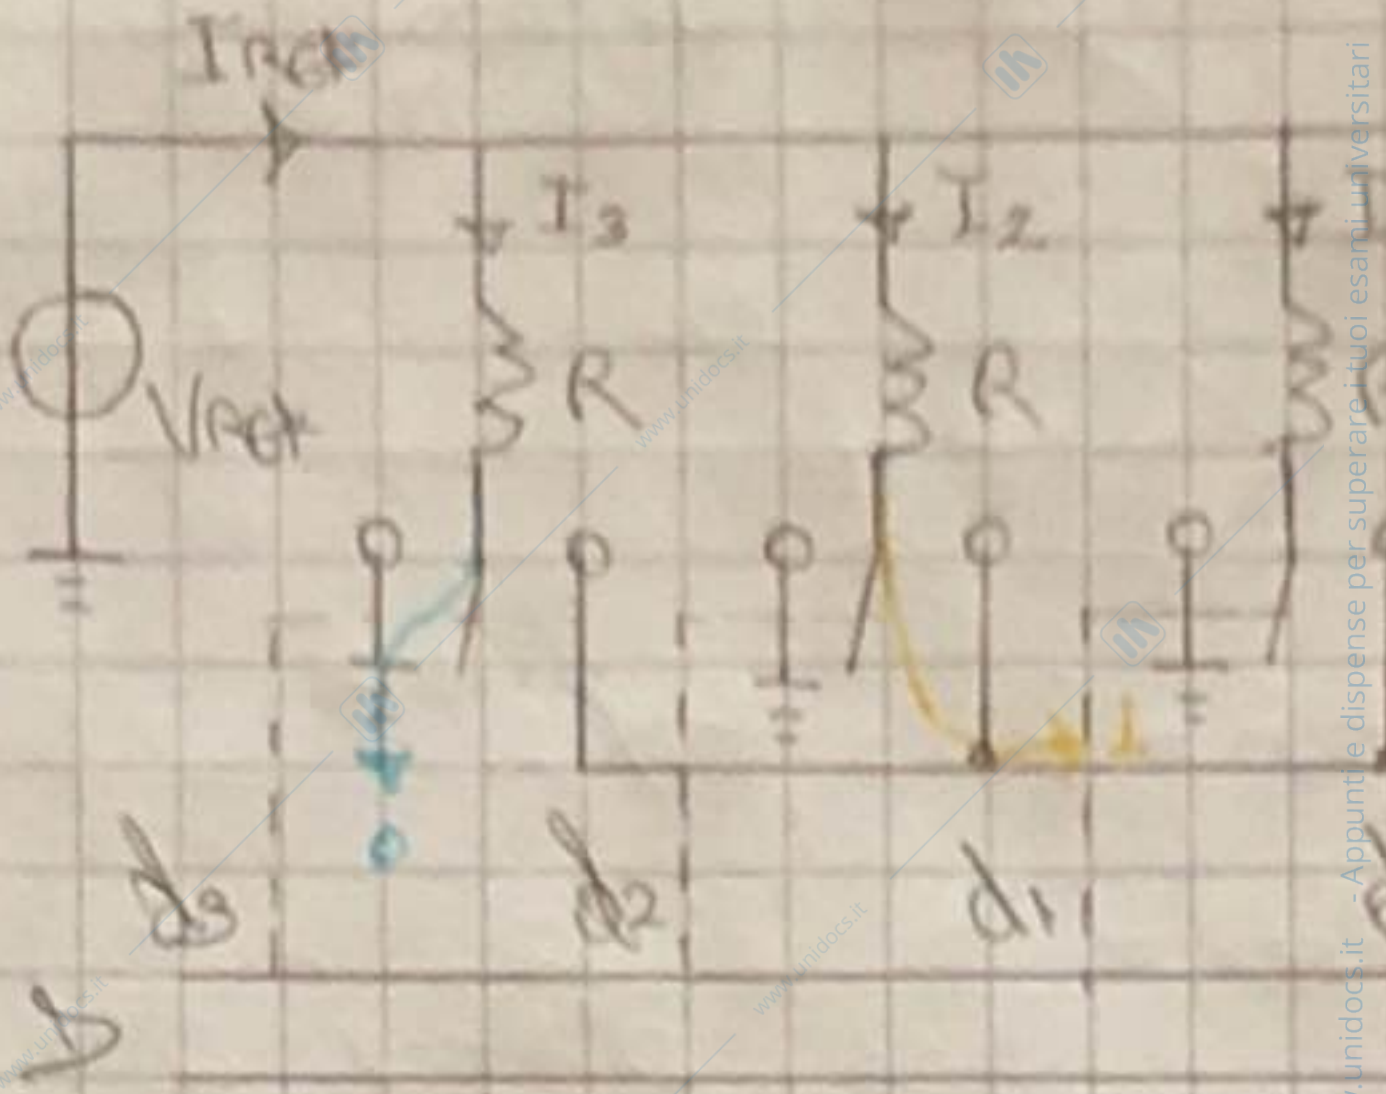 IREF
I3
I2
R
R
VREF
0
1
d3
d2
d1
D
www.unidocs.it
www.unidocs.it
www.unidocs.it
www.unidocs.it
unidocs.it - Appunti e dispense per superare i tuoi esami universitari